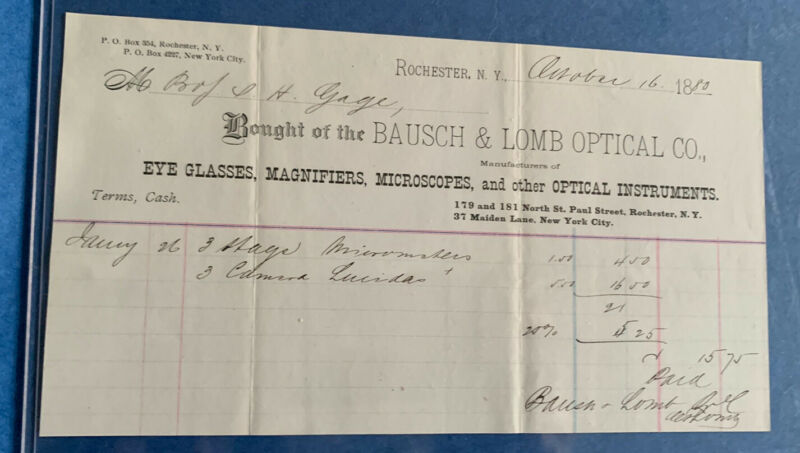 P. O. Box 354, Rochester, N. Y.
P. O. Box 4297, New York City.
ROCHESTER, N. Y., October 16 1880
M Prof S H. Gage,
Bought of the BAUSCH & LOMB OPTICAL CO.,
Manufacturers of
EYE GLASSES, MAGNIFIERS, MICROSCOPES, and other OPTICAL INSTRUMENTS.
Terms, Cash.
179 and 181 North St. Paul Street, Rochester, N. Y.
37 Maiden Lane, New York City.
26 3 Stage Micrometers 1.50 4 50
3 Camera Lucidas
21
5 25
15 75
Paid
Bausch & Lomb